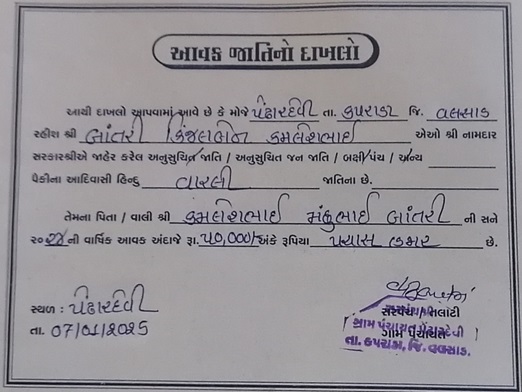 આવક જાતિનો દાખલો
આથી દાખલો આપવામાં આવે છે કે મોજે પેંઢારદેવી તા. કપરાડા જિ. વલસાડ
રહીશ શ્રી બાંતરી કિંજલબેન કમલેશભાઈ એઓ શ્રી નામદાર
સરકારશ્રીએ જાહેર કરેલ અનુસુચિત જાતિ / અનુસુચિત જન જાતિ / બક્ષી પંચ / અન્ય
પૈકીના આદિવાસી હિન્દુ વારલી જાતિના છે.
તેમના પિતા / વાલી શ્રી કમલેશભાઈ મંછુભાઈ બાંતરી ની સને
૨૦૨૪ ની વાર્ષિક આવક અંદાજે રૂા. ૫૦,૦૦૦/- અંકે રૂપિયા પચાસ હજાર છે.
સ્થળ : પેંઢારદેવી
તા. 07/01/2025
સરપંચ / તલાટી
ગ્રામ પંચાયત
ગ્રામ પંચાયત પેંઢારદેવી
તા. કપરાડા, જિ. વલસાડ.